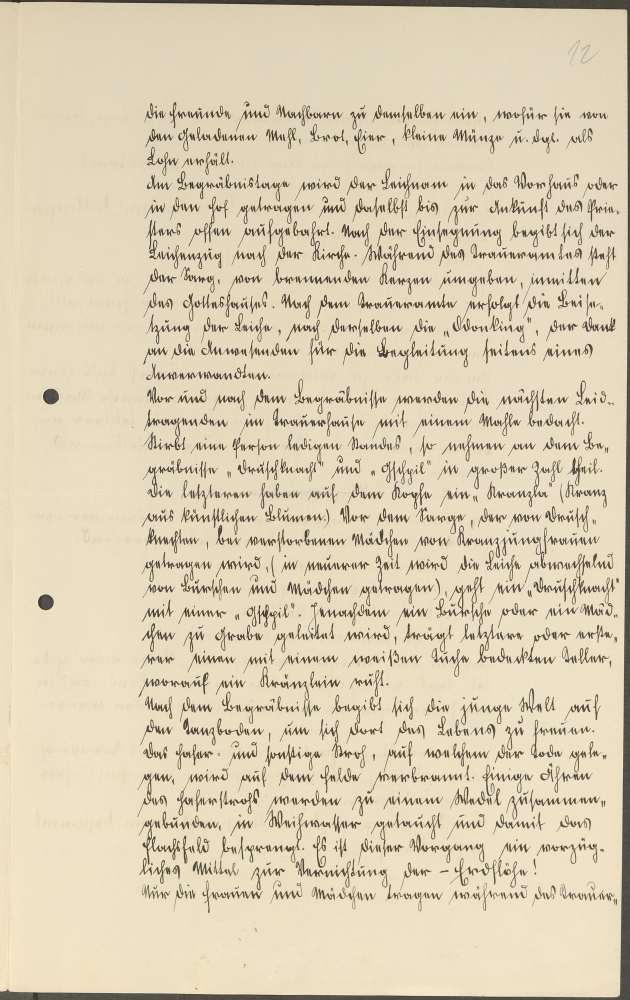 12
die Freunde und Nachbarn zu demselben ein, wofür sie von
den Geladenen Mehl, Brot, Eier, kleine Münze u. dgl. als
Lohn erhält.
Am Begräbnistage wird der Leichnam in das Vorhaus oder
in den Hof getragen und daselbst bis zur Ankunft des Prie-
sters offen aufgebahrt. Nach der Einsegnung begibt sich der
Leichenzug nach der Kirche. Während des Traueramtes steht
der Sarg, von brennenden Kerzen umgeben, inmitten
des Gotteshauses. Nach dem Traueramte erfolgt die Beise-
tzung der Leiche, nach derselben die „Odonking", der Dank
an die Anwesenden für die Begleitung seitens eines
Anverwandten.
Vor und nach dem Begräbnisse werden die nächsten Leid-
tragenden im Trauerhause mit einem Mahle bedacht.
Stirbt eine Person ledigen Standes, so nehmen an dem Be-
gräbnisse „Druschknacht" und „Gschpil" in großer Zahl theil.
Die letzteren haben auf dem Kopfe ein „Kranzla" (Kranz
aus künstlichen Blumen.) Vor dem Sarge, der von Drusch-
knechten, bei verstorbenen Mädchen von Kranzjungfrauen
getragen wird, (in neuerer Zeit wird die Leiche abwechselnd
von Burschen und Mädchen getragen), geht ein „Druschknacht"
mit einer „Gschpil". Jenachdem ein Bursche oder ein Mäd-
chen zu Grabe geleitet wird, trägt letztere oder erste-
rer einen mit einem weißen Tuche bedeckten Teller,
worauf ein Kränzlein ruht.
Nach dem Begräbnisse begibt sich die junge Welt auf
den Tanzboden, um sich dort des Lebens zu freuen.
Das Hafer- und sonstige Stroh, auf welchem der Tode gele-
gen, wird auf dem Felde verbrannt. Einige Ähren
des Haferstrohs werden zu einem Wedel zusammen-
gebunden, in Weihwasser getaucht und damit das
Flachsfeld besprengt. Es ist dieser Vorgang ein vorzüg-
liches Mittel zur Vernichtung der – Erdflöhe!
Nur die Frauen und Mädchen tragen während des Trauer-